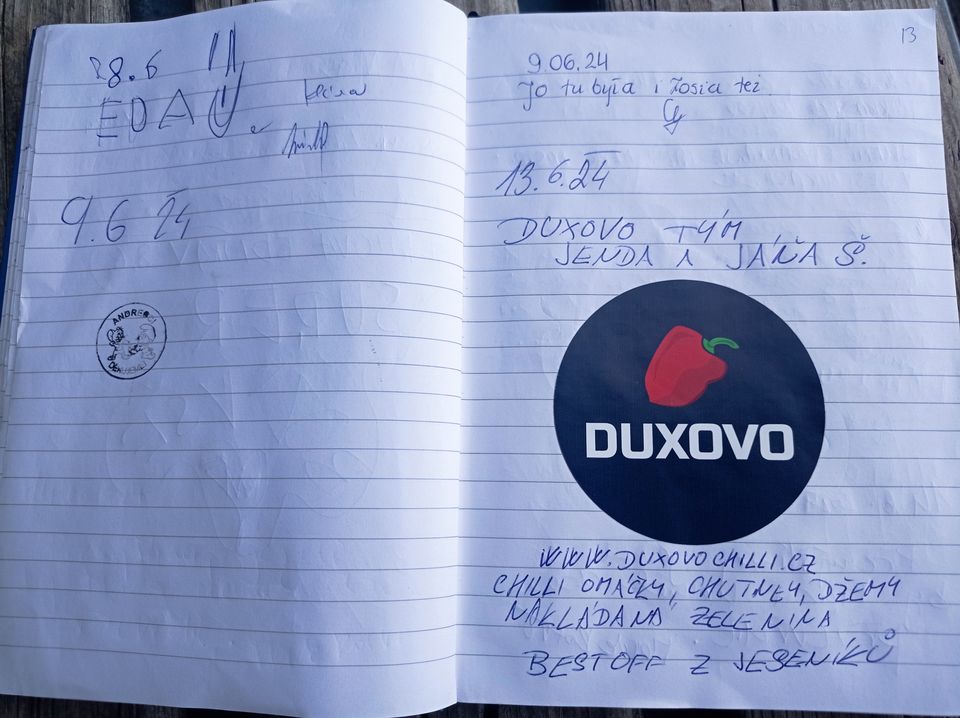 28.6
EDA
9.6 24
ANDRE
13
9.06.24
Jo tu była i Zosia też.
13.6.24
DUXOVO TÝM
JENDA A JÁŇA Š.
DUXOVO
WWW.DUXOVOCHILLI.CZ
CHILLI OMÁČKY, CHUTNEY, DŽEMY
NAKLÁDANÁ ZELENINA
BESTOFF Z JESENÍKŮ